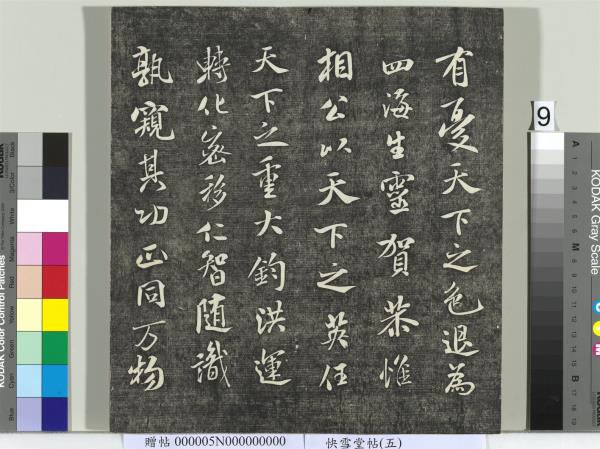 有憂天下之色退為
四海生靈賀恭惟
相公以天下之英任
天下之重大鈞洪運
轉化密移仁智随識
孰窺其功正同万物
9
KODAK Color Control Patches
Blue
Cyan
Green
Yellow
Red
Magenta
White
3/Color
Black
KODAK Gray Scale
A 1 2 3 4 5 6 M 8 9 10 11 12 13 14 15 B 17 18 19
贈帖 000005N000000000 快雪堂帖(五)